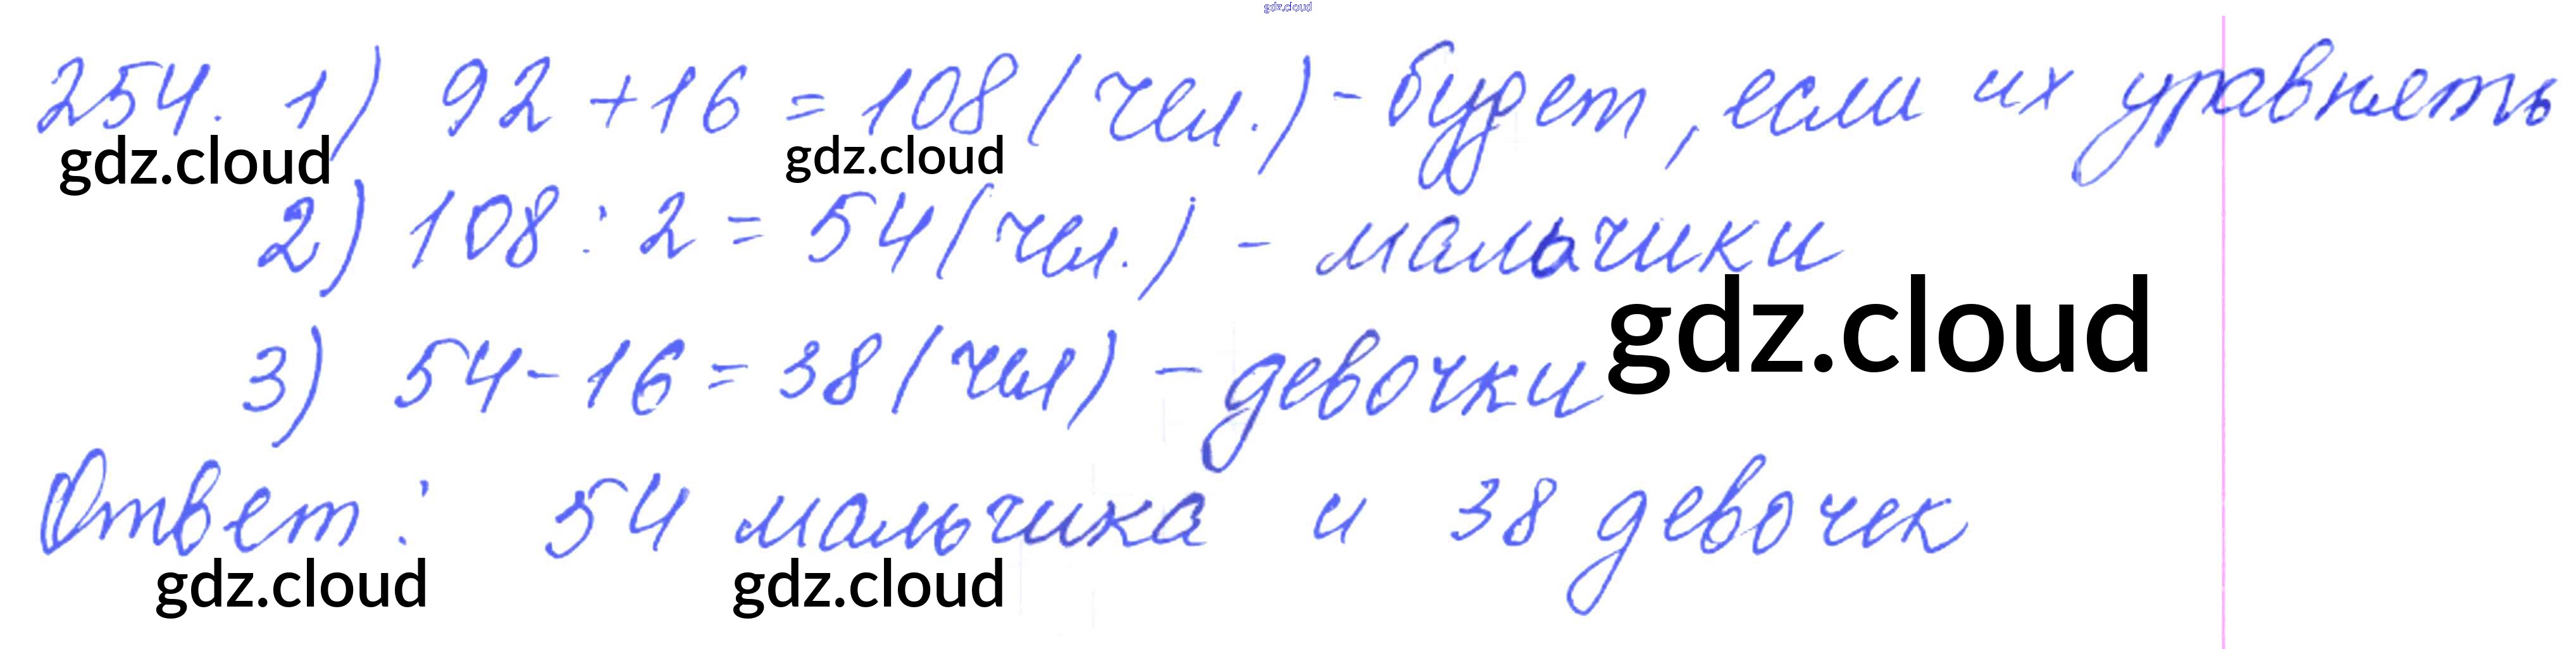 gdz.cloud
254. 1) 92 + 16 = 108 (чел.) - будет, если их уравнять
gdz.cloud gdz.cloud
2) 108 : 2 = 54 (чел.) - мальчики
gdz.cloud
3) 54 - 16 = 38 (чел) - девочки
Ответ: 54 мальчика и 38 девочек
gdz.cloud gdz.cloud